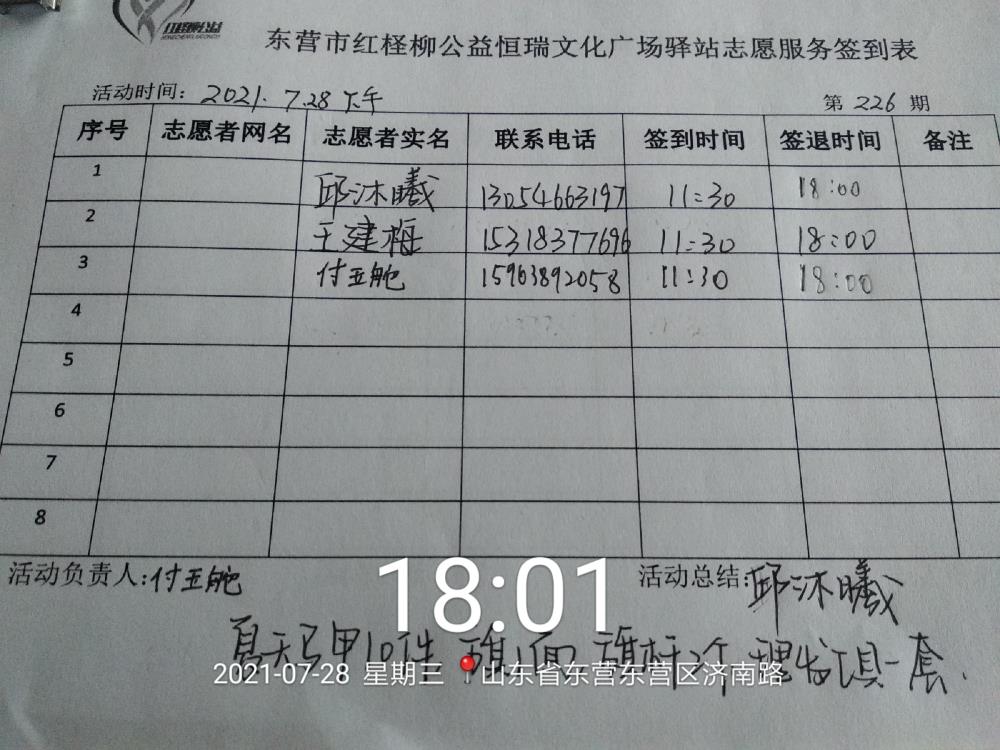 红柽柳公益
东营市红柽柳公益恒瑞文化广场驿站志愿服务签到表
活动时间: 2021.7.28下午 第 226 期
序号 志愿者网名 志愿者实名 联系电话 签到时间 签退时间 备注
1 邱沐曦 13054663197 11:30 18:00
2 王建梅 15318377696 11:30 18:00
3 付亚舵 15963892058 11:30 18:00
4
5
6
7
8
活动负责人:付亚舵 活动总结:邱沐曦
18:01
夏天马甲10件 旗1面 旗杆2个 理发工具一套.
2021-07-28 星期三 山东省东营东营区济南路